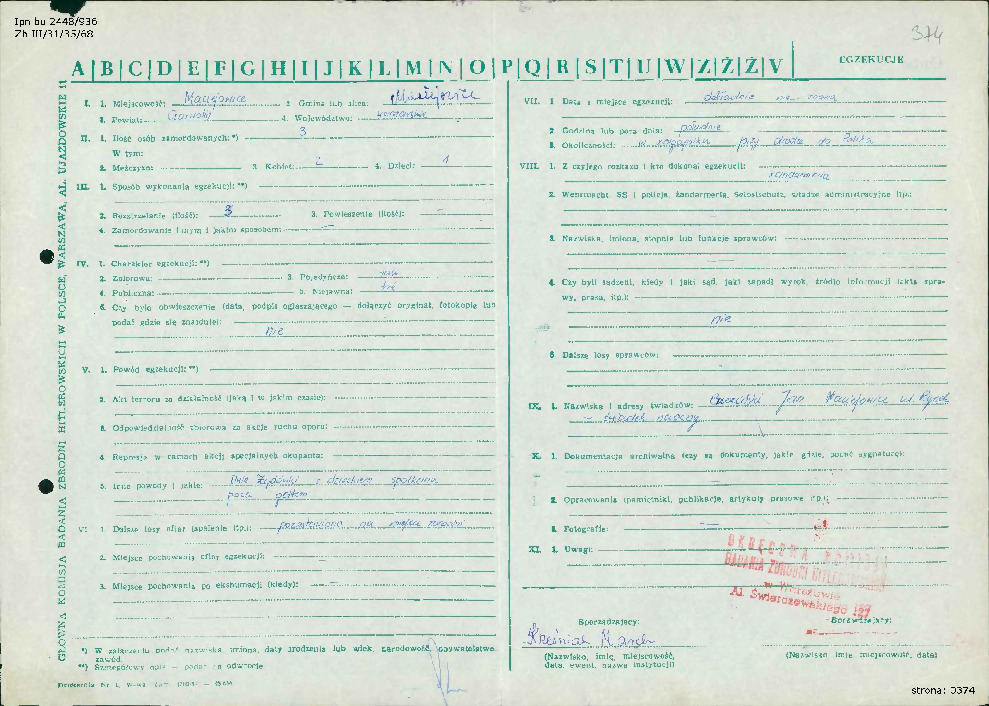 Ipn bu 2448/936
Zh III/31/35/68
374
A|B|C|D|E|F|G|H|I|J|K|L|M|N|O|P|Q|R|S|T|U|W|Z|Ż|Ź|V
EGZEKUCJE
GŁÓWNA KOMISJA BADANIA ZBRODNI HITLEROWSKICH W POLSCE, WARSZAWA, AL. UJAZDOWSKIE 11
I. 1. Miejscowość: Maciejowice 2. Gmina lub ulica: Maciejowice
3. Powiat: Garwolin 4. Województwo: warszawskie
II. 1. Ilość osób zamordowanych:*) 3
W tym:
2. Mężczyzn: 3. Kobiet: 2 4. Dzieci: 1
III. 1. Sposób wykonania egzekucji:**)
2. Rozstrzelanie (ilość): 3 3. Powieszenie (ilość): —
4. Zamordowanie innym i jakim sposobem: —
IV. 1. Charakter egzekucji:**)
2. Zbiorowa: 3. Pojedyncza:
4. Publiczna: 5. Niejawna:
6. Czy było obwieszczenie (data, podpis ogłaszającego — dołączyć oryginał, fotokopię lub
podać gdzie się znajduje):
nie
V. 1. Powód egzekucji:**)
2. Akt terroru za działalność (jaką i w jakim czasie):
3. Odpowiedzialność zbiorowa za akcje ruchu oporu:
4. Represje w ramach akcji specjalnych okupanta:
5. Inne powody i jakie: Dwie Żydówki z dzieckiem spotkane
poza gettem
VI. 1. Dalsze losy ofiar (spalenie itp.): pozostawione na miejscu
2. Miejsce pochowania ofiar egzekucji:
3. Miejsce pochowania po ekshumacji (kiedy): —
*) W załączeniu podać nazwiska, imiona, daty urodzenia lub wiek, narodowość, obywatelstwo
zawód.
**) Szczegółowy opis — podać na odwrocie
VII. 1. Data i miejsce egzekucji: dokładnie nie
2. Godzina lub pora dnia: południe
3. Okoliczności: przy drodze do
VIII. 1. Z czyjego rozkazu i kto dokonał egzekucji:
żandarmeria
2. Wehrmacht, SS i policja, żandarmeria, Selbstschutz, władze administracyjne itp.:
3. Nazwiska, imiona, stopnie lub funkcje sprawców:
—
4. Czy byli sądzeni, kiedy i jaki sąd, jaki zapadł wyrok, źródło informacji (akta spra-
wy, prasa, itp.):
nie
5. Dalsze losy sprawców:
IX. 1. Nazwiska i adresy świadków: Jan Maciejowice ul. Rynek
świadek naoczny
X. 1. Dokumentacja archiwalna (czy są dokumenty, jakie gdzie, podać sygnaturę):
2. Opracowania (pamiętniki, publikacje, artykuły prasowe itp.):
3. Fotografie: —
XI. 1. Uwagi:
OKRĘGOWA KOMISJA
BADANIA ZBRODNI HITLEROWSKICH
w Warszawie
Al. Świerczewskiego 127
Sporządzający:
(Nazwisko, imię, miejscowość,
data, ewent. nazwa instytucji)
Sprawdzający:
(Nazwisko, imię, miejscowość, data)
strona: 0374